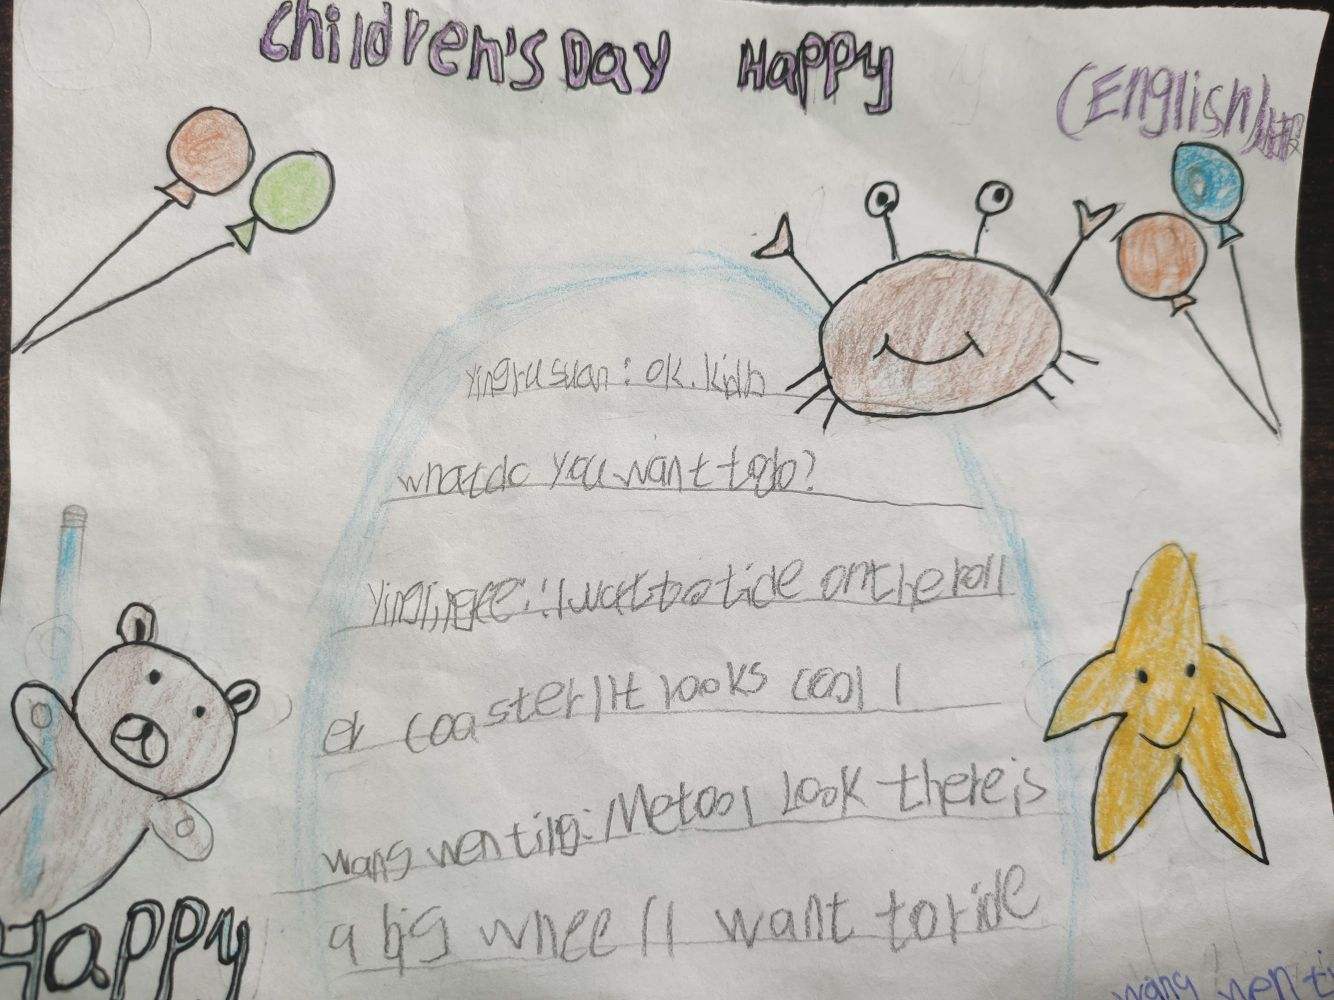 Children's Day Happy
(English)
Yingrusuan: OK. Kids
what do you want to do?
Yinglingkee: I want to ride on the roll
er coaster! It looks cool!
wang wenting: Me too! Look there is
a big wheel! I want to ride
Happy
wang wenti